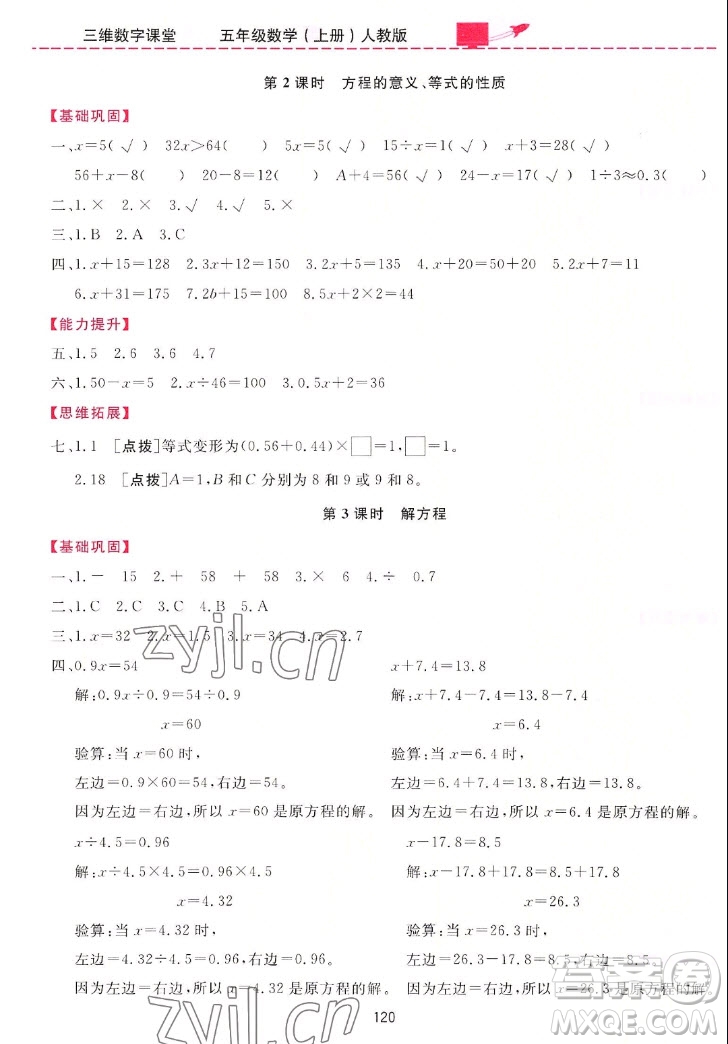 三维数字课堂 五年级数学(上册)人教版
第2课时 方程的意义、等式的性质
【基础巩固】
一、x=5(√) 32x>64( ) 5x=5(√) 125÷x=1(√) x+3=28(√)
56+x-8( ) 20-8=12( ) A+4=56(√) 24-x=17(√) 1÷3≈0.3( )
二、1.× 2.× 3.√ 4.√ 5.×
三、1.B 2.A 3.C
四、1.x+15=128 2.x-12=150 3.2x+5=135 4.x+20=50 5.2x+7=11
6.x+31=175 7.2b+15=100 8.5x+2×2=44
【能力提升】
五、1.5 2.6 3.6 4.7
六、1.50-x=5 2.x÷46=80 3.x+2=36
【思维拓展】
七、1.1 [点拨]等式变形为(0.56+0.44)×□=1,□=1。
2.18 [点拨]A=1,B和C分别为8和9或9和8。
第3课时 解方程
【基础巩固】
一、1.- 15 2.+ 58 + 58 3.× 6 4.÷ 0.7
二、1.C 2.C 3.A 4.B 5.A
三、1.x=32 2.x=1.5 3.x=34 4.x=2.7
四、0.9x=54 x+7.4=13.8
解:0.9x÷0.9=54÷0.9 解:x+7.4-7.4=13.8-7.4
x=60 x=6.4
验算:当x=60时, 验算:当x=6.4时,
左边=0.9×60=54,右边=54, 左边=6.4+7.4=13.8,右边=13.8,
因为左边=右边,所以x=60是原方程的解。 因为左边=右边,所以x=6.4是原方程的解。
x÷4.5=0.96 x-17.8=8.5
解:x÷4.5×4.5=0.96×4.5 解:x-17.8+17.8=8.5+17.8
x=4.32 x=26.3
验算:当x=4.32时, 验算:当x=26.3时,
左边=4.32÷4.5=0.96,右边=0.96, 左边=26.3-17.8=8.5,右边=8.5,
因为左边=右边,所以x=4.32是原方程的解。 因为左边=右边,所以x=26.3是原方程的解。
120
zyjl.cn
zyjl.cn
答案圈
MXQE.COM